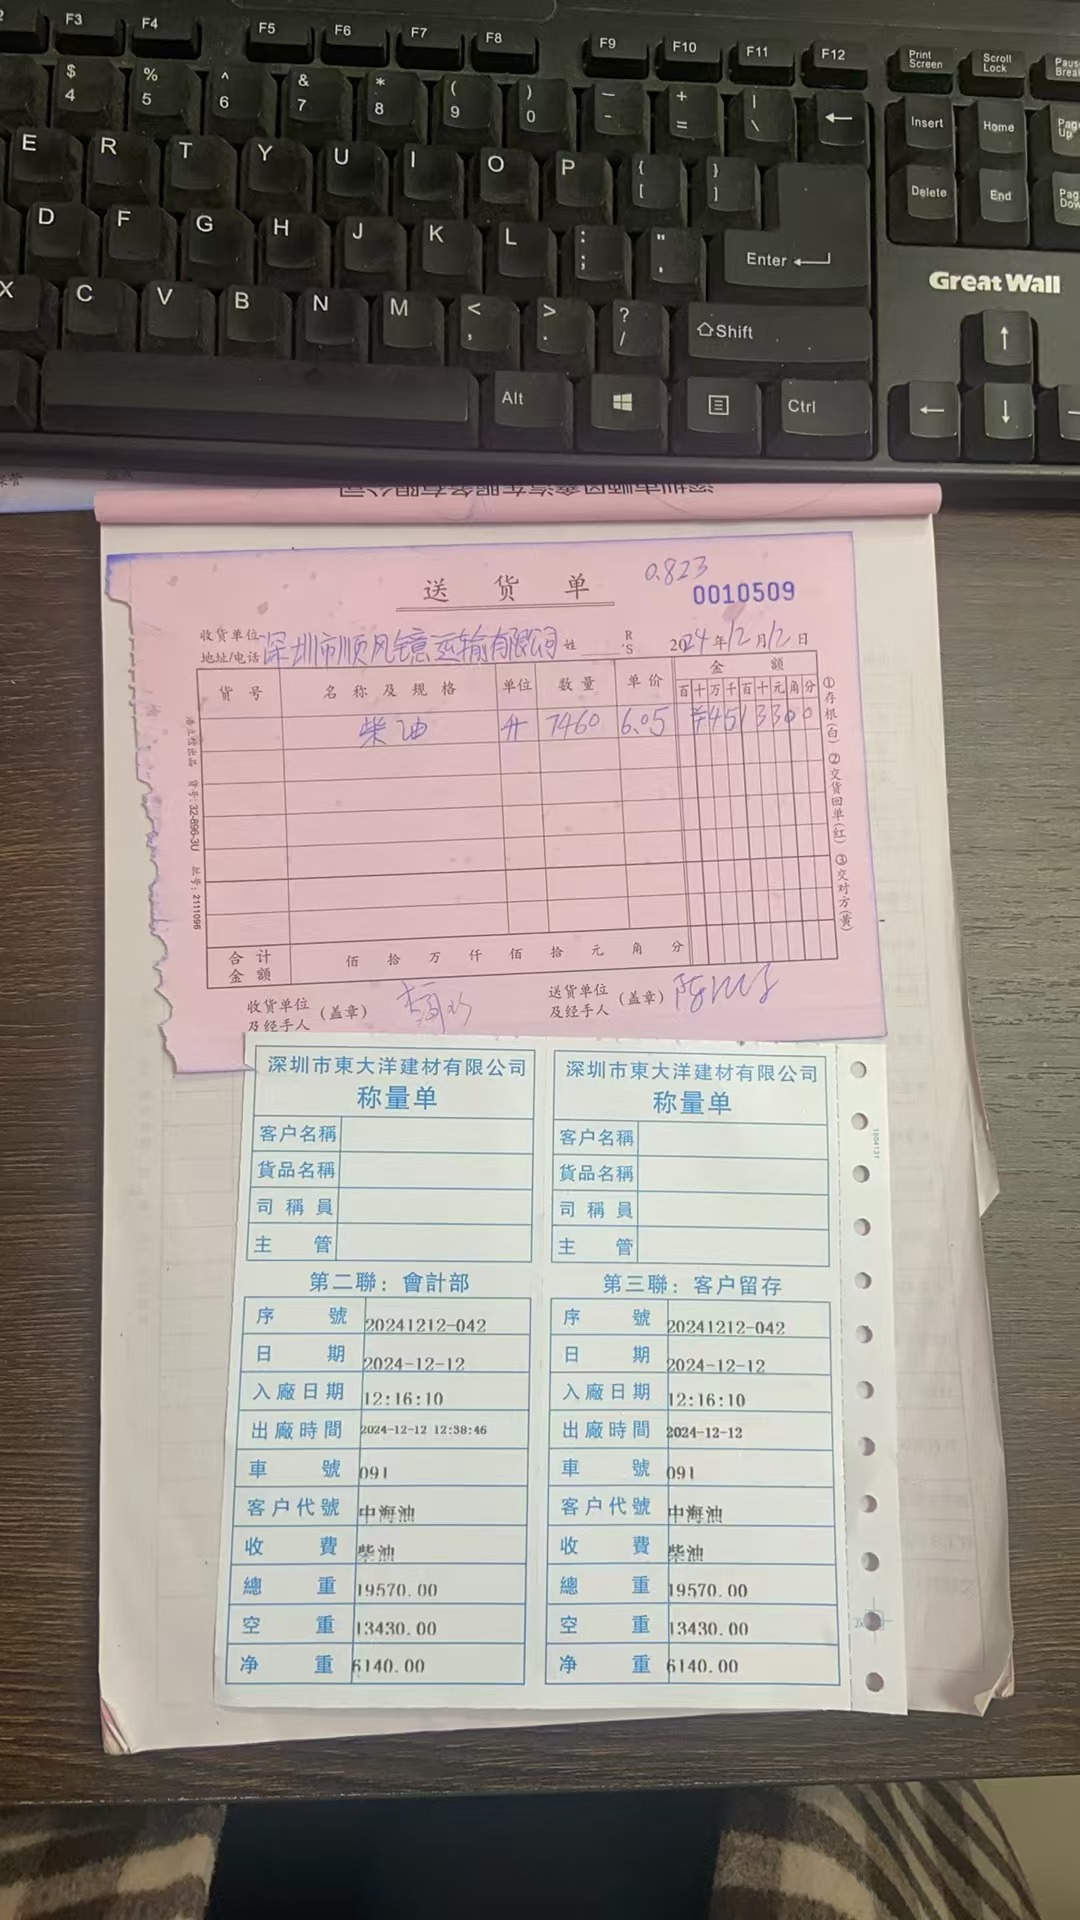 F3 F4 F5 F6 F7 F8 F9 F10 F11 F12 Print Screen Scroll Lock
$ 4 % 5 ^ 6 & 7 * 8 ( 9 ) 0 — - + = | \ ← Insert Home
E R T Y U I O P { [ } ] Delete End
D F G H J K L : ; " Enter
Great Wall
X C V B N M < , > . ? / Shift ↑
Alt Ctrl ← ↓
送货单
0.823
0010509
收货单位
地址/电话
深圳市顺风镱运输有限公司
姓
R'S
2024年12月12日
货号 名称及规格 单位 数量 单价 金额
百十万千百十元角分
柴油 升 7460 6.05 ¥4513300
①存根(白) ②交货回单(红) ③交对方(黄)
货号:32-896-3U 批号:2111096
合计金额 佰 拾 万 仟 佰 拾 元 角 分
收货单位及经手人(盖章)
送货单位及经手人(盖章)
深圳市東大洋建材有限公司
称量单
客户名稱
貨品名稱
司稱員
主管
第二聯：會計部
序號 20241212-042
日期 2024-12-12
入廠日期 12:16:10
出廠時間 2024-12-12 12:38:46
車號 091
客户代號 中海油
收費 柴油
總重 19570.00
空重 13430.00
净重 6140.00
深圳市東大洋建材有限公司
称量单
客户名稱
貨品名稱
司稱員
主管
第三聯：客户留存
序號 20241212-042
日期 2024-12-12
入廠日期 12:16:10
出廠時間 2024-12-12
車號 091
客户代號 中海油
收費 柴油
總重 19570.00
空重 13430.00
净重 6140.00